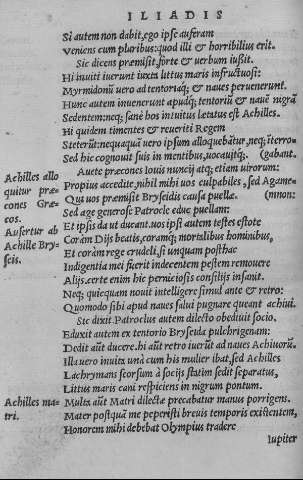 ILIADIS
Si autem non dabit, ego ipse auferam
Veniens cum pluribus: quod illi & horribilius erit.
Sic dicens præmisit, forte & uerbum iußit.
Hi inuiti iuerunt iuxta littus maris infructuosi:
Myrmidonũ uero ad tentoriaq; & naues peruenerunt.
Hunc autem inuenerunt apudq; tentoriũ & nauẽ nigrã
Sedentem: neq; sanè hos intuitus lætatus est Achilles.
Hi quidem timentes & reueriti Regem
Steterũt: nequaquã uero ipsum alloquebãtur, neq; ĩterro-
Sed hic cognouit suis in mentibus, uocauitq́;. (gabant.
Auete præcones Iouis nuncij atq; etiam uirorum:
Achilles allo
Propius accedite, nihil mihi uos culpabiles, sed Agame-
quitur præ
Qui uos præmisit Bryseidis causa puellæ. (mnon:
cones Græ-
Sed age generose Patrocle educ puellam:
cos.
Et ipsis da ut ducant. uos ipsi autem testes estote
Aufertur ab
Corãm Dijs beatis, coramq́; mortalibus hominibus,
Achille Bry
Et corãm rege crudeli, si unquam posthac
seis.
Indigentia mei fuerit indecentem pestem remouere
Alijs. certe enim hic perniciosis consilijs insanit.
Neq; quicquam nouit intelligere simul ante & retro:
Quomodo sibi apud naues salui pugnare queant achiui.
Sic dixit. Patroclus autem dilecto obediuit socio.
Eduxit autem ex tentorio Bryseida pulchrigenam:
Dedit aũt ducere. hi aũt retro iuerũt ad naues Achiuorũ.
Illa uero inuita unà cum his mulier ibat, sed Achilles
Lachrymans seorsum à socijs statim sedit separatus,
Littus maris cani respiciens in nigrum pontum.
Achilles ma
Multa aũt Matri dilectæ precabatur manus porrigens.
tri.
Mater postquã me peperisti breuis temporis existentem,
Honorem mihi debebat Olympius tradere
Iupiter